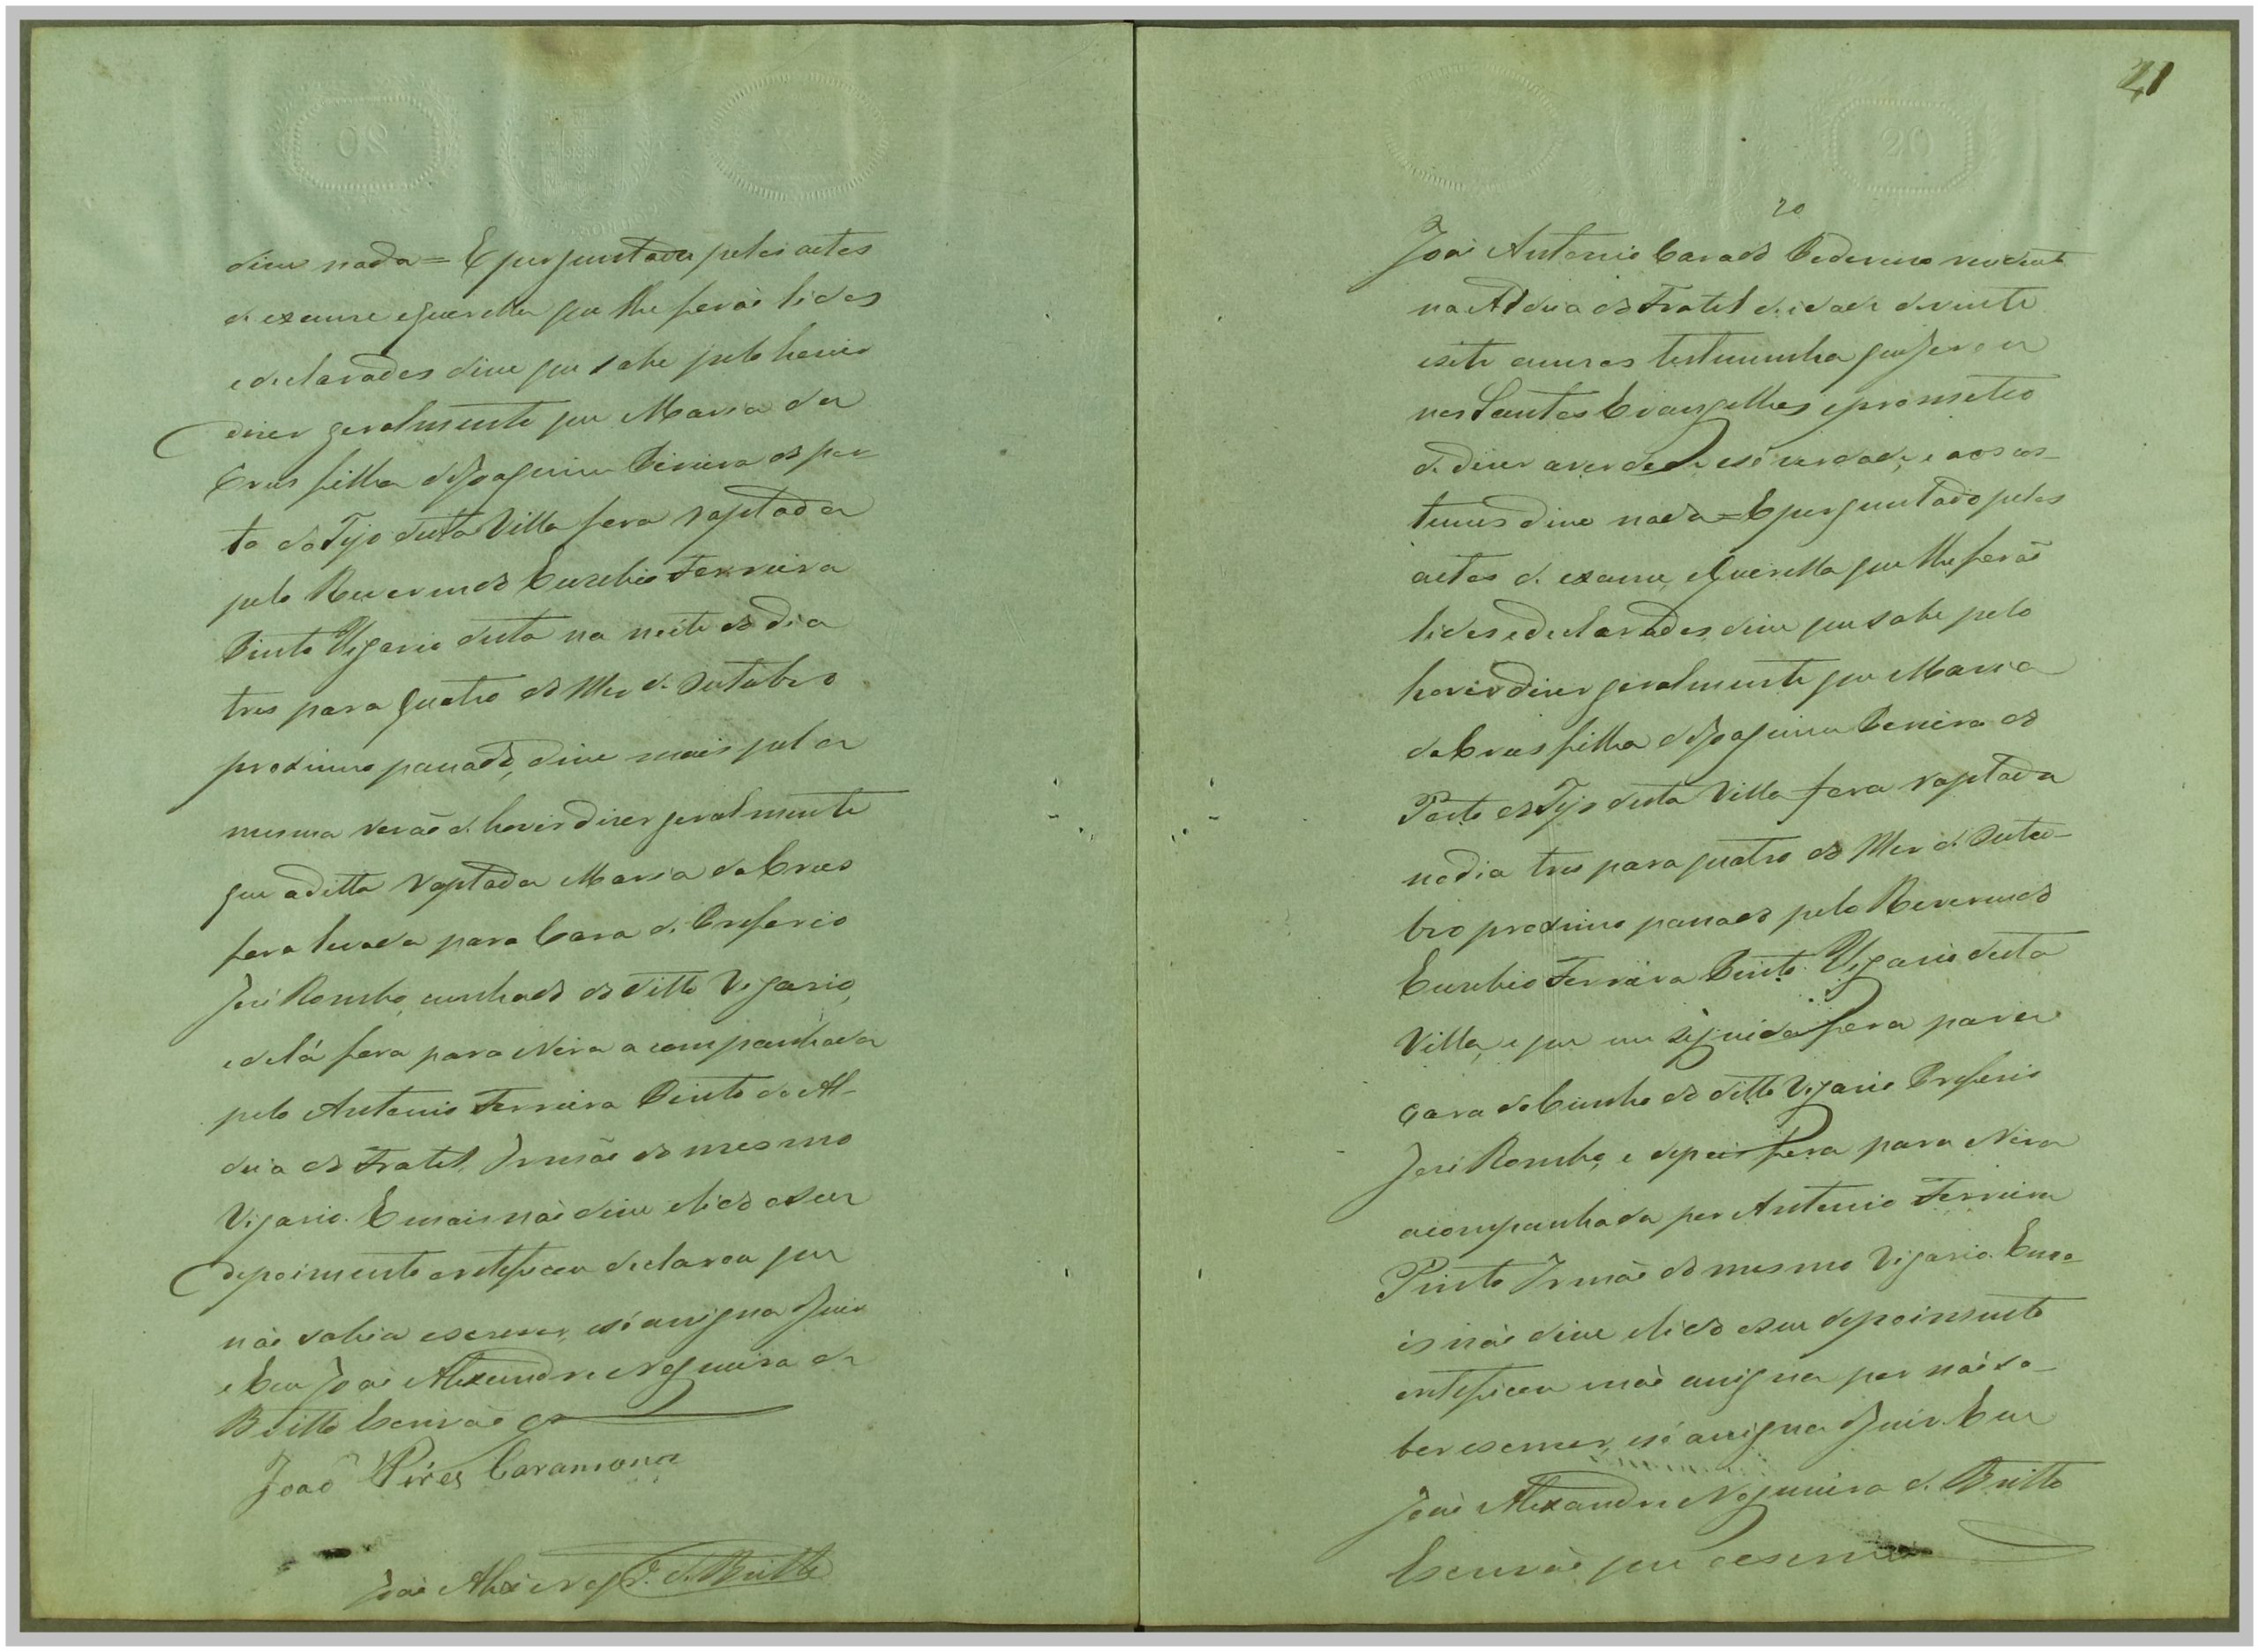 disse nada = E perguntada pelos autos
de exame e querella que lhe forão lidos
e declarados disse que sabe pelo houvir
dizer geralmente que Maria da
Crus filha de Joaquim Pereira do por-
to do Tejo desta Villa fora raptada
pelo Reverendo Euzebio Ferreira
Pinto Vigario desta na noite do dia
tres para quatro do Mes de Outubro
proximo passado, disse mais pela
mesma rasão de houvir dizer geralmente
que a ditta raptada Maria da Crus
fora levada para Casa de Onofre
José Rombo, cunhado do ditto Vigario,
e de lá fora para Niza acompanhada
pelo Antonio Ferreira Pinto da Al-
deia do Fratel, Irmão do mesmo
Vigario. E mais não disse e lido o seu
depoimento o ratificou declarou que
não sabia escrever, e só assigna o Juiz
e Eu João Alexandre Nogueira de
Britto Escrivão
João Pires Caramona
João Alex.e Nog.ra de Britto
21
20
João Antonio Cazado Pedereiro rezidente
na Aldeia do Fratel de idade de vinte
e sete annos testemunha que jurou
nos Santos Evangelhos e prometeo
de dizer a verdade e só verdade, e aos cos-
tumes disse nada = E perguntado pelos
autos de exame, e Querella que lhe forão
lidos e declarados, disse que sabe pelo
houvir dizer geralmente que Maria
da Crus filha de Joaquim Pereira do
Porto do Tejo desta Villa fora raptada
no dia tres para quatro do Mes de Outu-
bro proximo passado pelo Reverendo
Euzebio Ferreira Pinto Vigario desta
Villa, e que em seguida fora para
Caza do Cunhado do ditto Vigario
José Rombo, e depois fora para Niza
acompanhada por Antonio Ferreira
Pinto Irmão do mesmo Vigario. E ma-
is não disse e lido o seu depoimento
o ratificou e não assigna por não sa-
ber escrever, e só assigna o Juiz. E eu
João Alexandre Nogueira de Britto
Escrivão que o escrevi